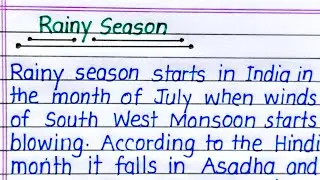 Rainy Season
Rainy season starts in India in
the month of July when winds
of South West Monsoon starts
blowing. According to the Hindi
month it falls in Asadha and